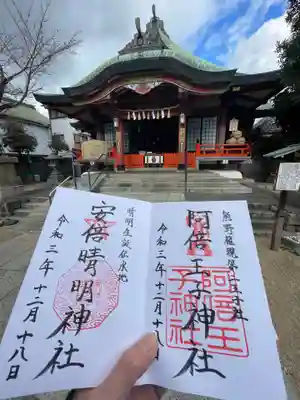 熊野
阿倍王子神社
阿倍王
子神社
令和三年十二月十八日
晴明生誕伝承地
安倍晴明神社
令和三年十二月十八日